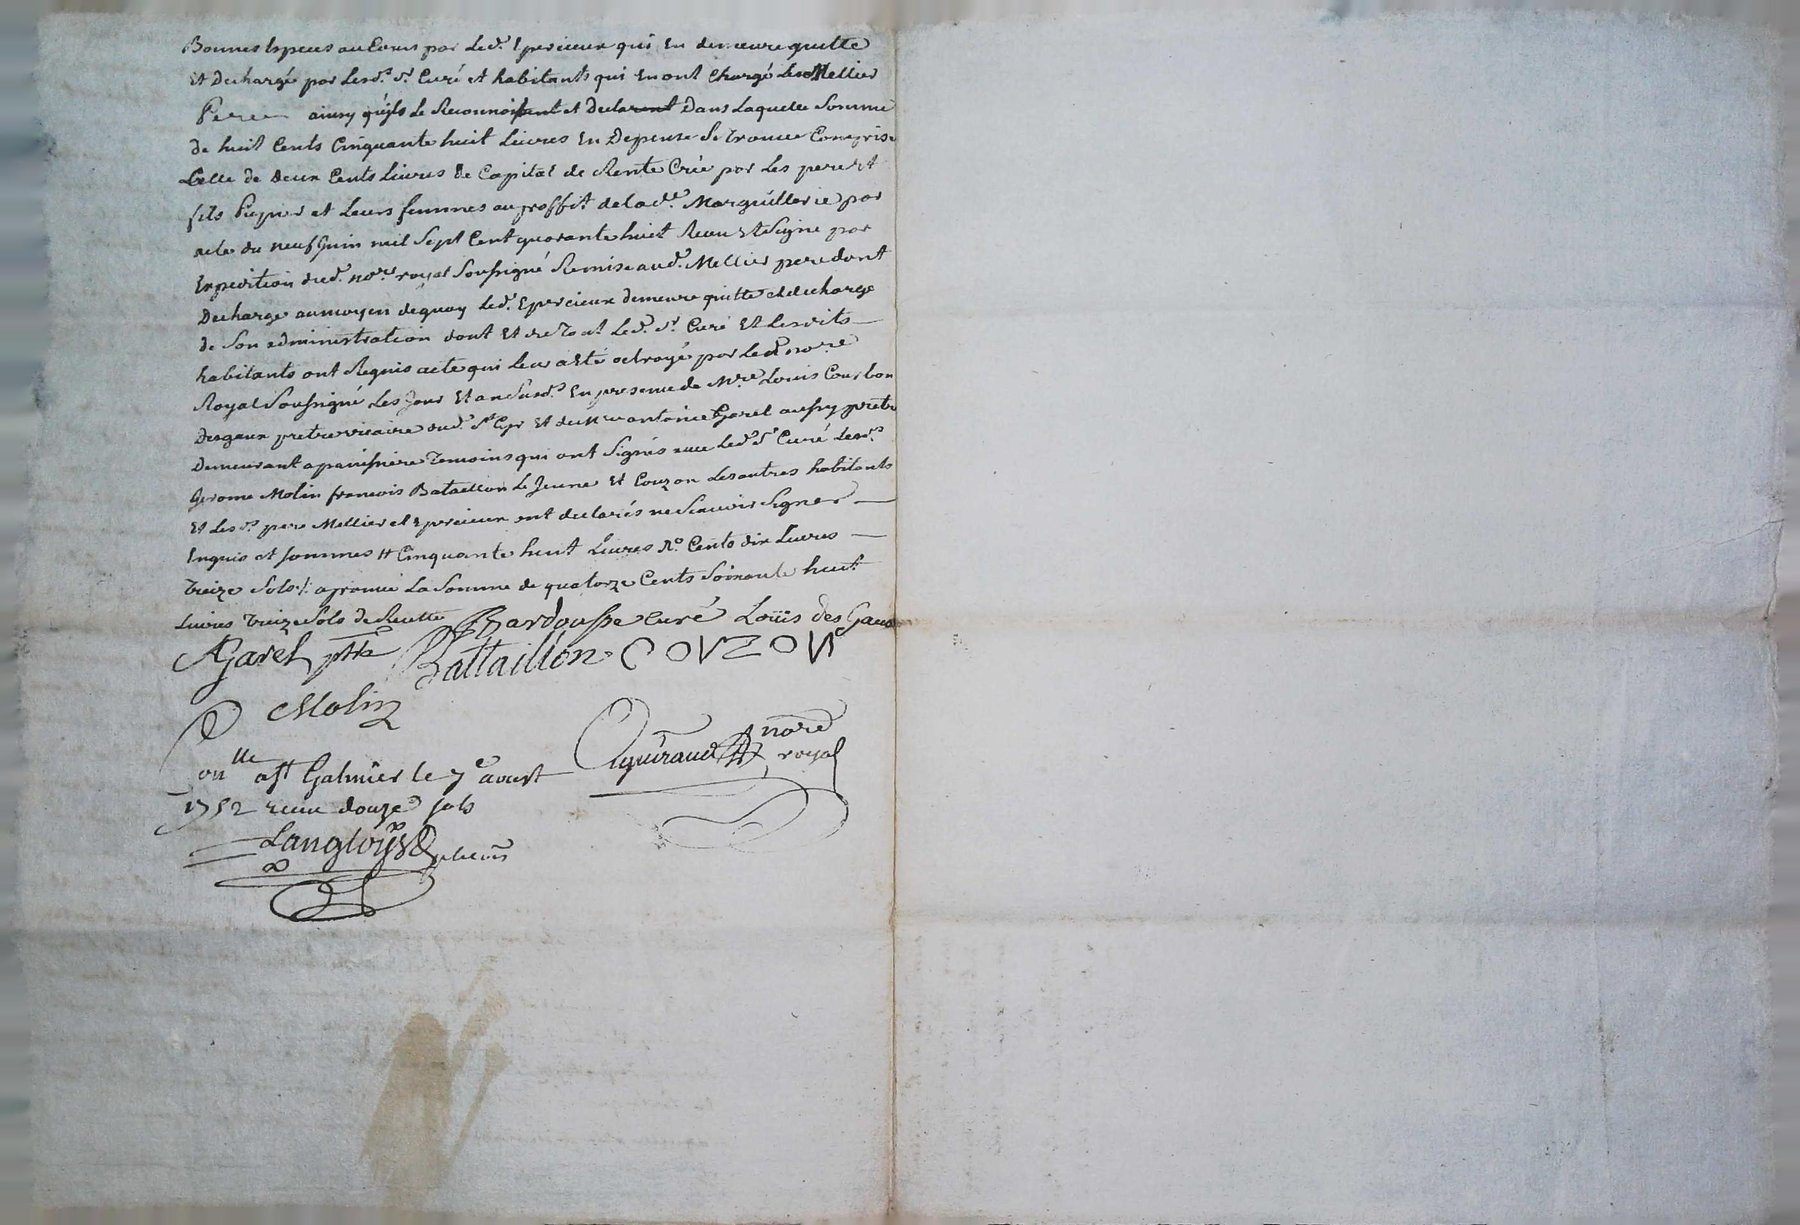 Bonnes Especes au Cours par led.t Epercieux qui En demeure quitte
Et Dechargé par Lesd.s Sr. Curé et habitants qui En ont Chargé Led Mellier
Pere ainsy qu'ils Le Reconnoissent et Declarent Dans Laquelle Somme
de huit Cents Cinquante huit Livres En Depense Se trouve Comprise
Celle de deux Cents Livres de Capital de Rente Crée par Les pere Et
fils Pupier et Leurs femmes au proffit de lad.te Marguillerie par
acte du neuf Juin mil Sept Cent quarante huit Receu Et Signé par
Expedition dud.t nore. royal Soussigné Remise aud.t Mellier pere dont
Decharge au moyen dequoy Led.t Epercieux demeure quitte et decharge
de Son administration dont Et du Led.t Sr. Curé Et Lesdits
habitants ont Requis acte qui Leur a Eté octroyé par Led nore.
Royal Soussigné Les Jour Et an Susd.s En presence de Mre. Louis Courbon
Desgaux pretre vicaire dud.t St Cyr Et de Mre antoine Garel aussy pretre
Demeurant a panissiere Temoins qui ont Signés avec Led.t Sr. Curé Lesd.s
Jerome Molin francois Bataillon Le Jeune Et Couzon Les autres habitants
Et Les d.s pere Mellier et Epercieux ont declarés ne Scavoir Signer
Enquis et sommes # Cinquante huit Livres Ro. Cents dix Livres
treize Sols /. aprouvé La Somme de quatorze Cents Soixante huit
Livres treize Sols de Recette Bardousse Curé Louis des Gaux
AGarel ptre Battaillon COUZON
Molin
Cquiraud nore
royal
on lle a St Galmier le 7e aoust
1752 receu douze sols
Langlois